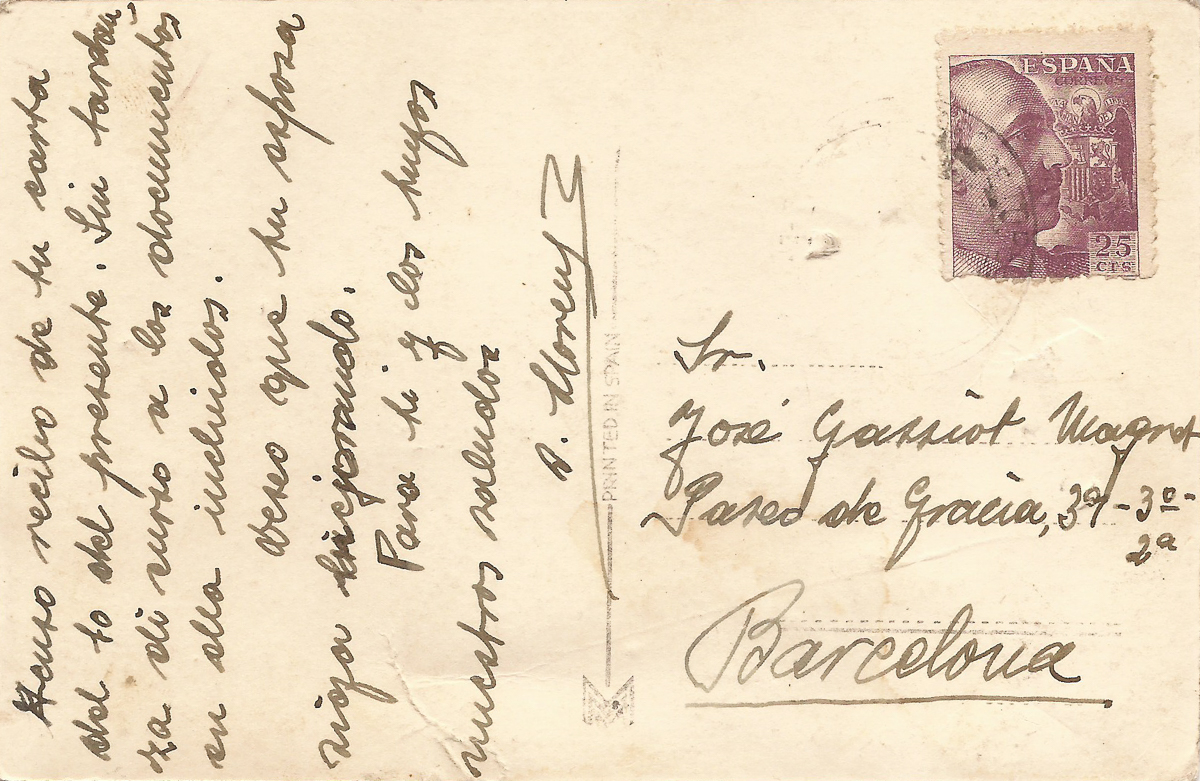 Acuso recibo de tu carta
del 10 del presente. Sin tardan-
za di curso a los documentos
en ella incluidos.
Deseo que tu esposa
siga mejorando.
Para ti y los tuyos
nuestros saludos
J. Llorens
PRINTED IN SPAIN
ESPAÑA
CORREOS
25
CTS
Sr.
José Gassiot Magret
Paseo de Gracia, 39-3º-
2ª
Barcelona